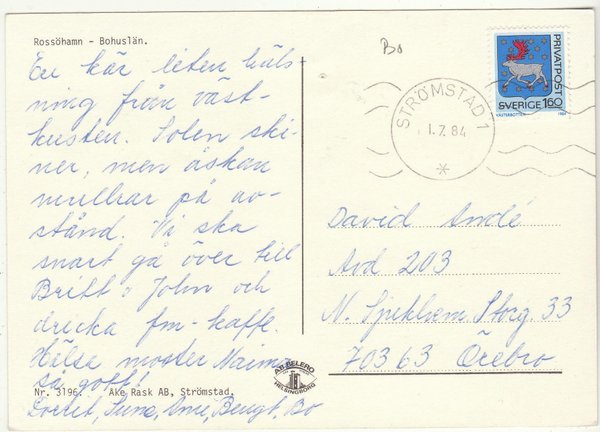 Rossöhamn - Bohuslän.
En kär liten häls-
ning från väst-
kusten. Solen ski-
ner, men åskan
mullrar på av-
stånd. Vi ska
snart gå över till
Britt o John och
dricka fm-kaffe.
Hälse moster Naima
så gott!
Nr. 3196. Åke Rask AB, Strömstad.
Sune, Bengt, Bo
Bo
PRIVATPOST
SVERIGE 160
VÄSTERBOTTEN 1984
STRÖMSTAD 1
1.7.84
David André
Avd 203
N. Storg. 33
703 63 Örebro
AB BELERO
HELSINGBORG